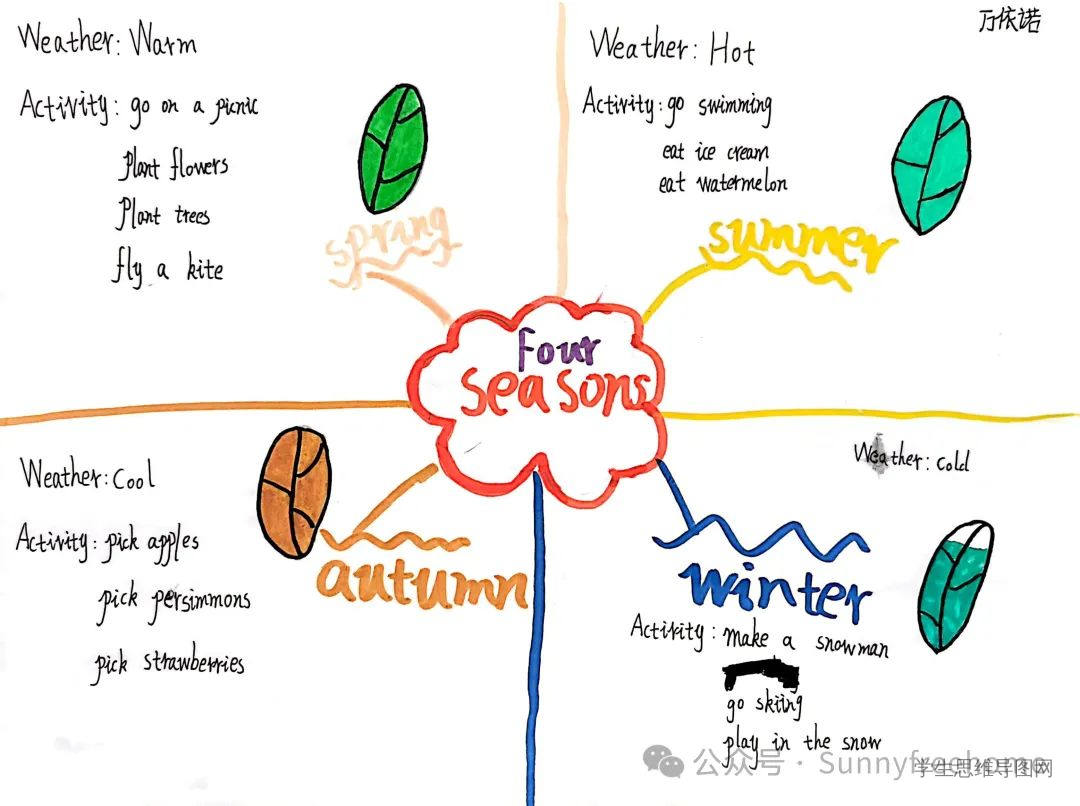 万依诺
Weather: Warm
Activity: go on a picnic
Plant flowers
Plant trees
fly a kite
spring
Weather: Hot
Activity: go swimming
eat ice cream
eat watermelon
summer
Four
seasons
Weather: Cool
Activity: pick apples
pick persimmons
pick strawberries
autumn
Weather: cold
winter
Activity: make a snowman
go skiing
play in the snow
公众号 · Sunnyfreehome
学生思维导图网